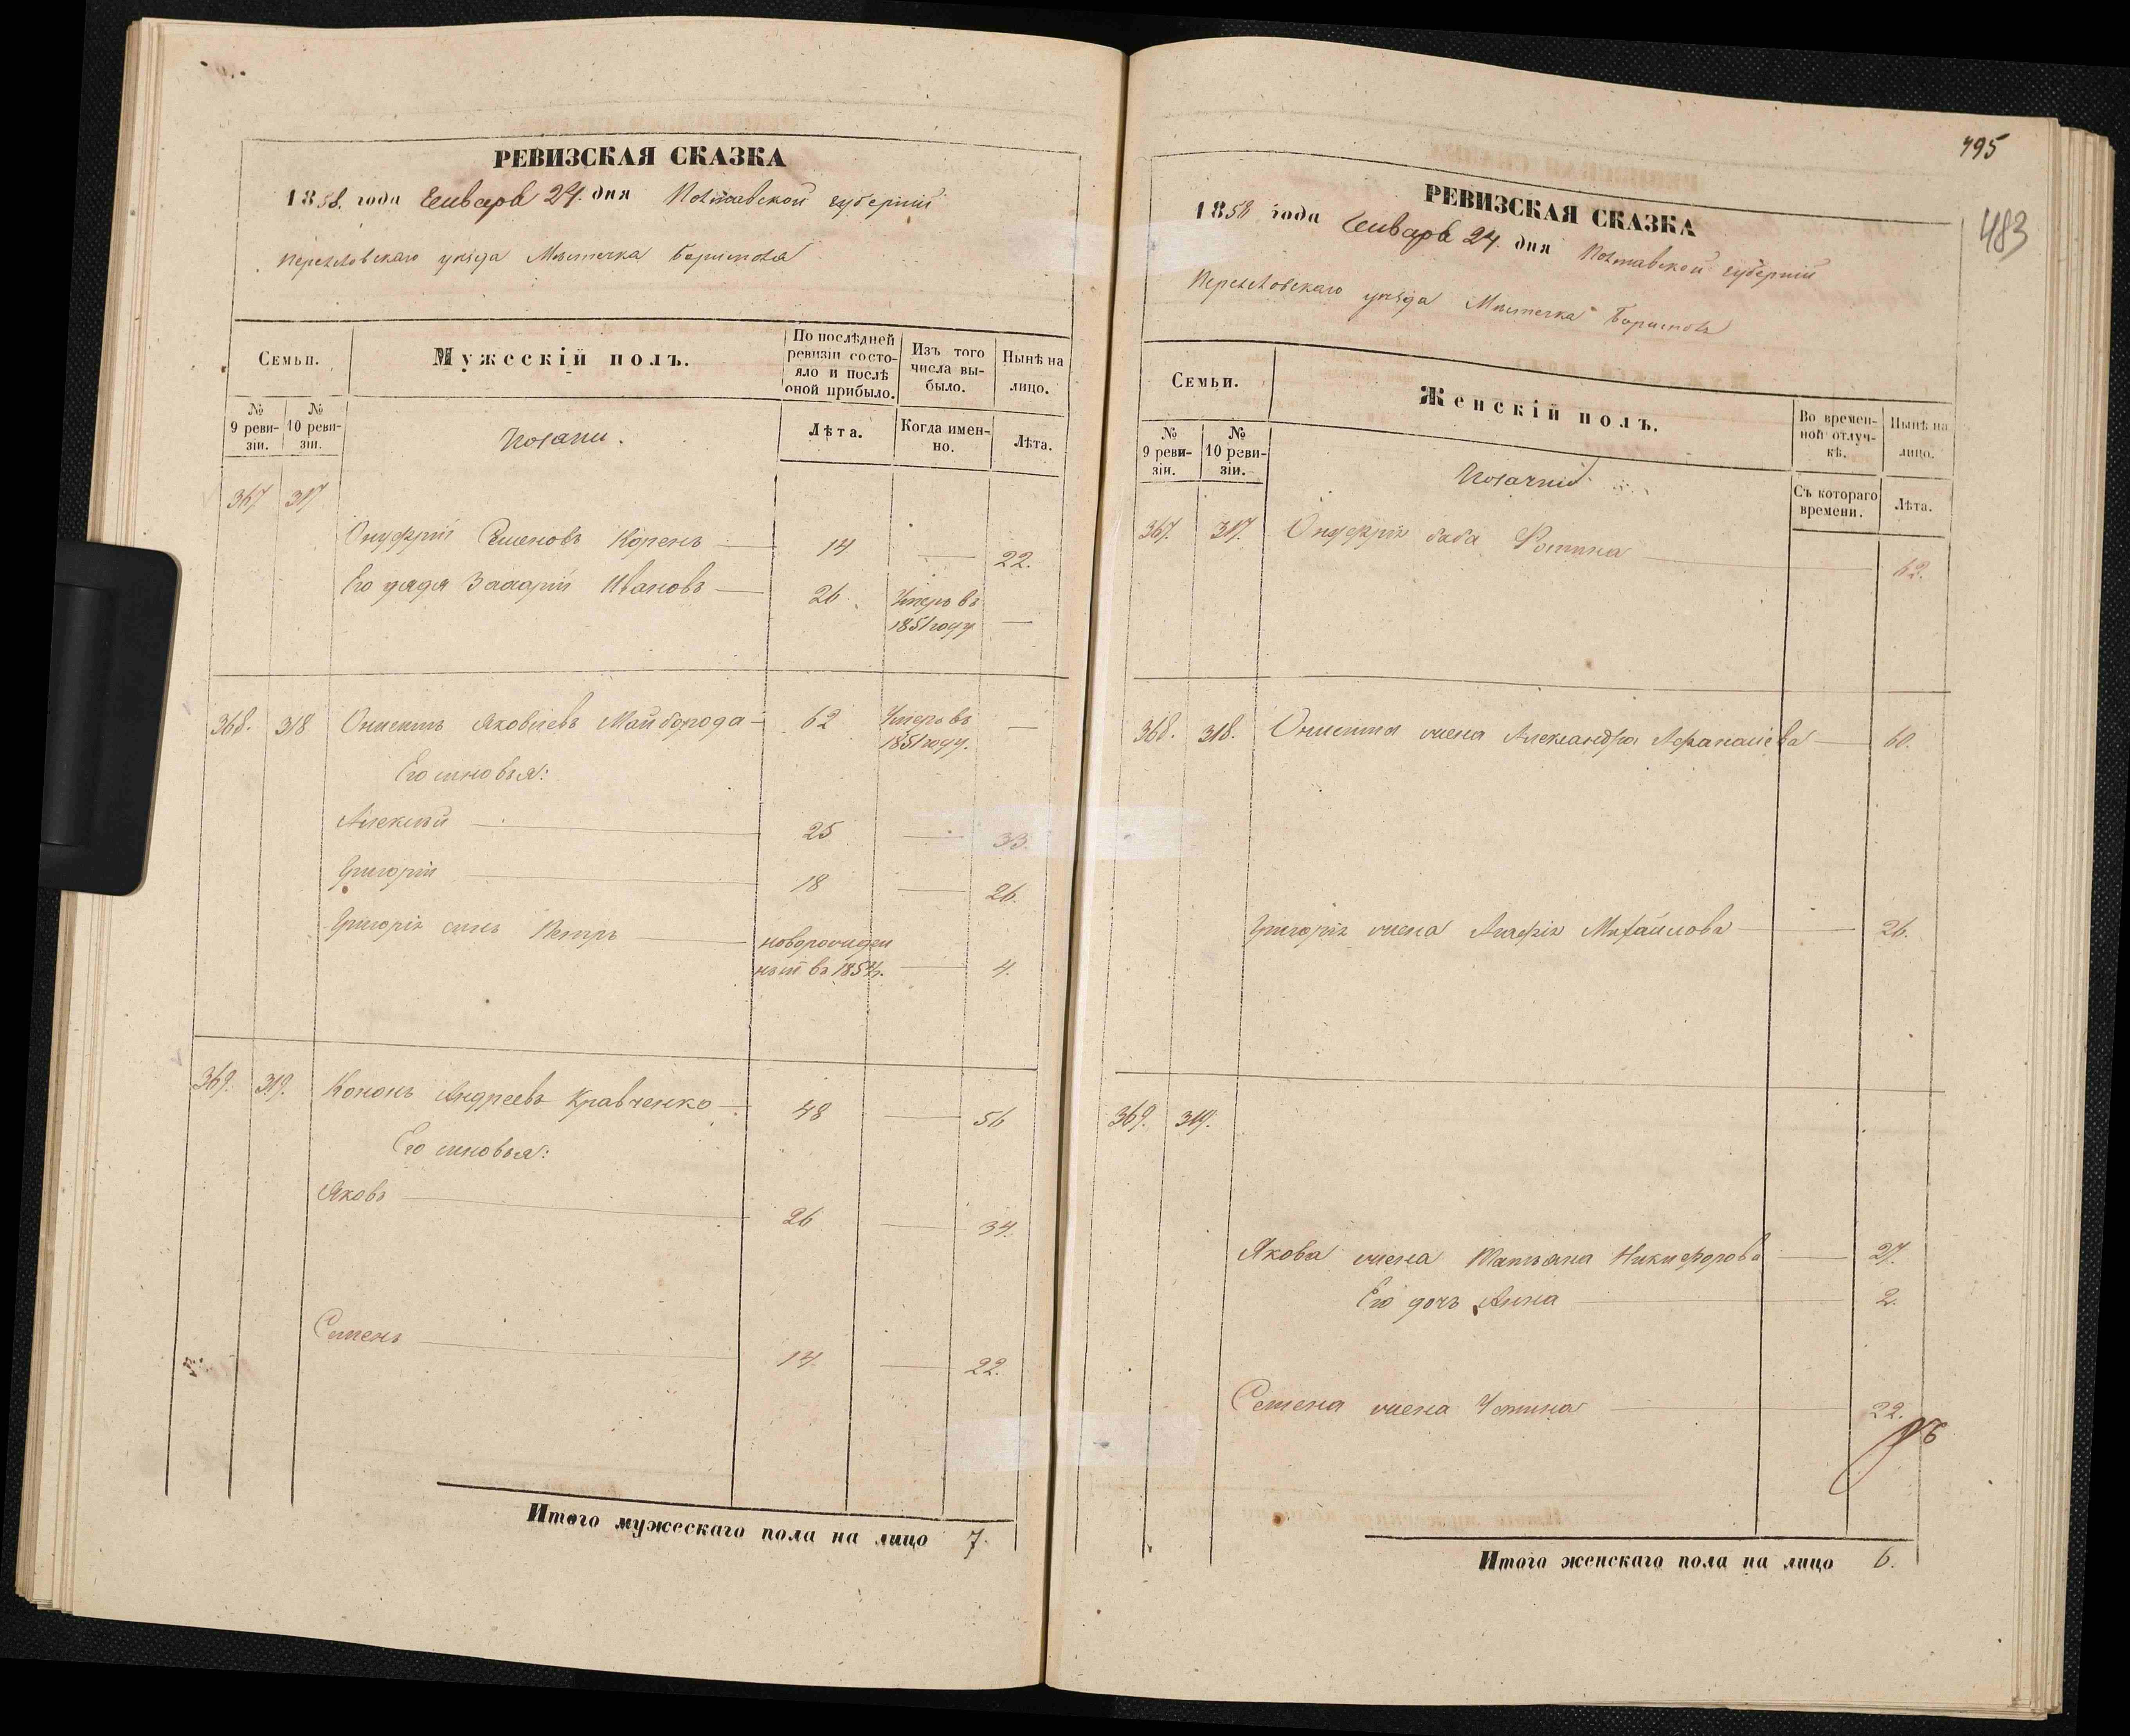 РЕВИЗСКАЯ СКАЗКА
1858. года Генваря 24. дня Полтавской губерніи
Переясловскаго уѣзда Мѣстечка Борисполя
Семьи.
Мужескій полъ.
По послѣдней ревизіи состояло и послѣ оной прибыло.
Изъ того числа выбыло.
Нынѣ на лицо.
№ 9 ревизіи.
№ 10 ревизіи.
Козаки.
Лѣта.
Когда именно.
Лѣта.
367 317
Онуфрій Семеновъ Корень 14 — 22.
Его дядя Захарій Ивановъ 26. Умеръ въ
1851 году —
368. 318 Онисимъ Яковлевъ Майборода 62 Умеръ въ
1851 году. —
Его сыновья:
Алексѣй 25 — 33.
Григорій 18 — 26.
Григорія сынъ Петръ новорожден
ный въ 1854 г. — 4.
369. 319. Кононъ Андреевъ Кравченко 48 — 56
Его сыновья:
Яковъ 26 — 34.
Семенъ 14. — 22.
Итого мужескаго пола на лицо 7.
495
483
РЕВИЗСКАЯ СКАЗКА
1858 года Генваря 24. дня Полтавской губерніи
Переясловскаго уѣзда Мѣстечка Борисполя
Семьи.
Женскій полъ.
Во временной отлучкѣ.
Нынѣ на лицо.
№ 9 ревизіи.
№ 10 ревизіи.
Козачки
Съ котораго времени.
Лѣта.
367. 317. Онуфрія баба Фотина 62.
368. 318. Онисима жена Александра Афанасіева 60.
Григорія жена Агафія Михайлова 26.
369. 319.
Якова жена Татьяна Никифорова 27.
Его дочь Анна 2.
Семена жена Устина 22.
Итого женскаго пола на лицо 6.